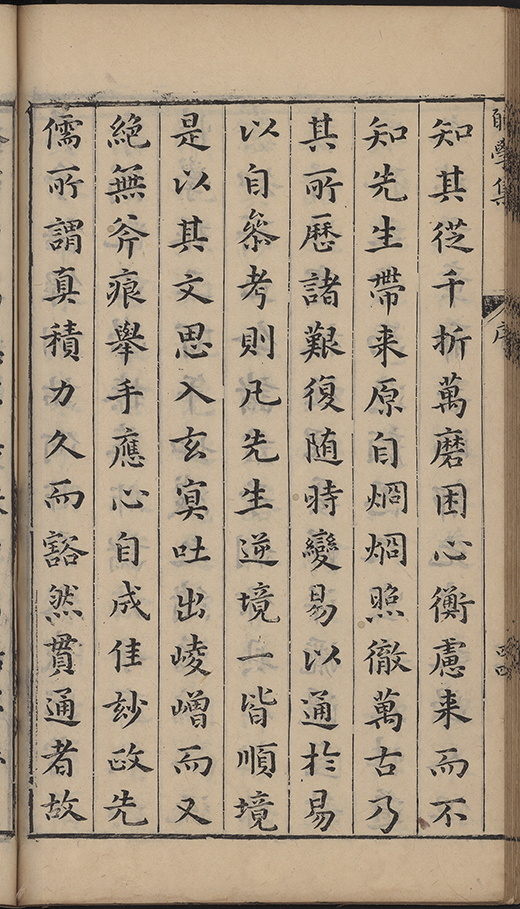 知其従千折萬磨困心衡慮来而不
知先生帶来原自烱烱照徹萬古乃
其所歷諸艱復随時變易以通於易
以自叅考則凡先生逆境一皆順境
是以其文思入玄㝠吐出崚嶒而又
絶無斧痕舉手應心自成佳玅政先
儒所謂真積力久而豁然貫通者故
學集
序
四